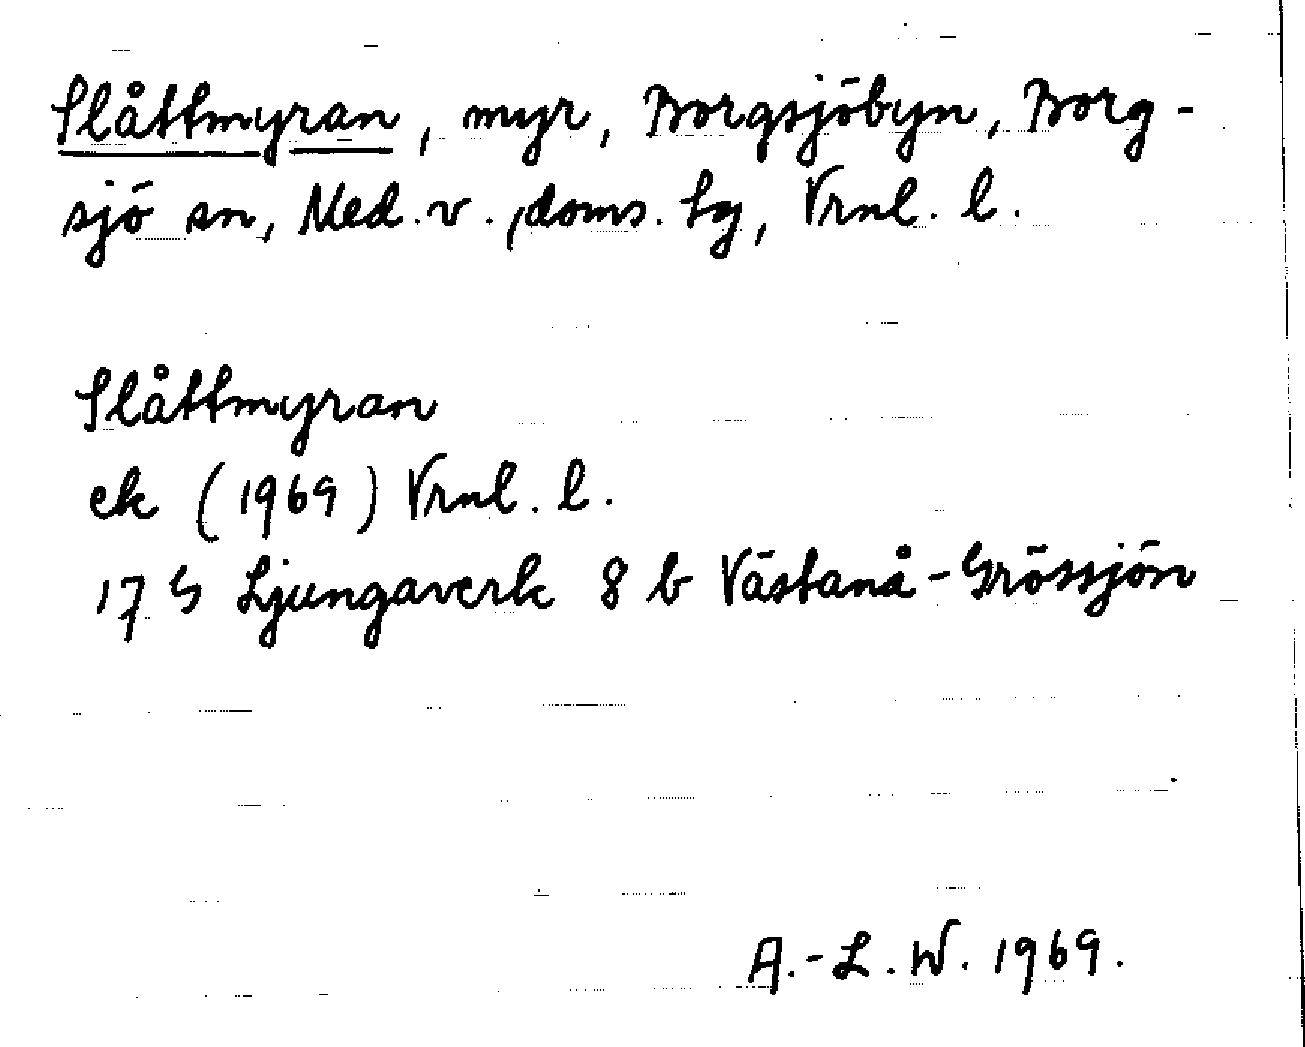 Slåttmyran, myr, Borgsjöbyn, Borg-
sjö sn, Med. v., doms. sg, Vrnl. l.
Slåttmyran
ek (1969) Vrnl. l.
17 G Ljungaverk 8 b Västanå-Grössjön
A.-L. W. 1969.